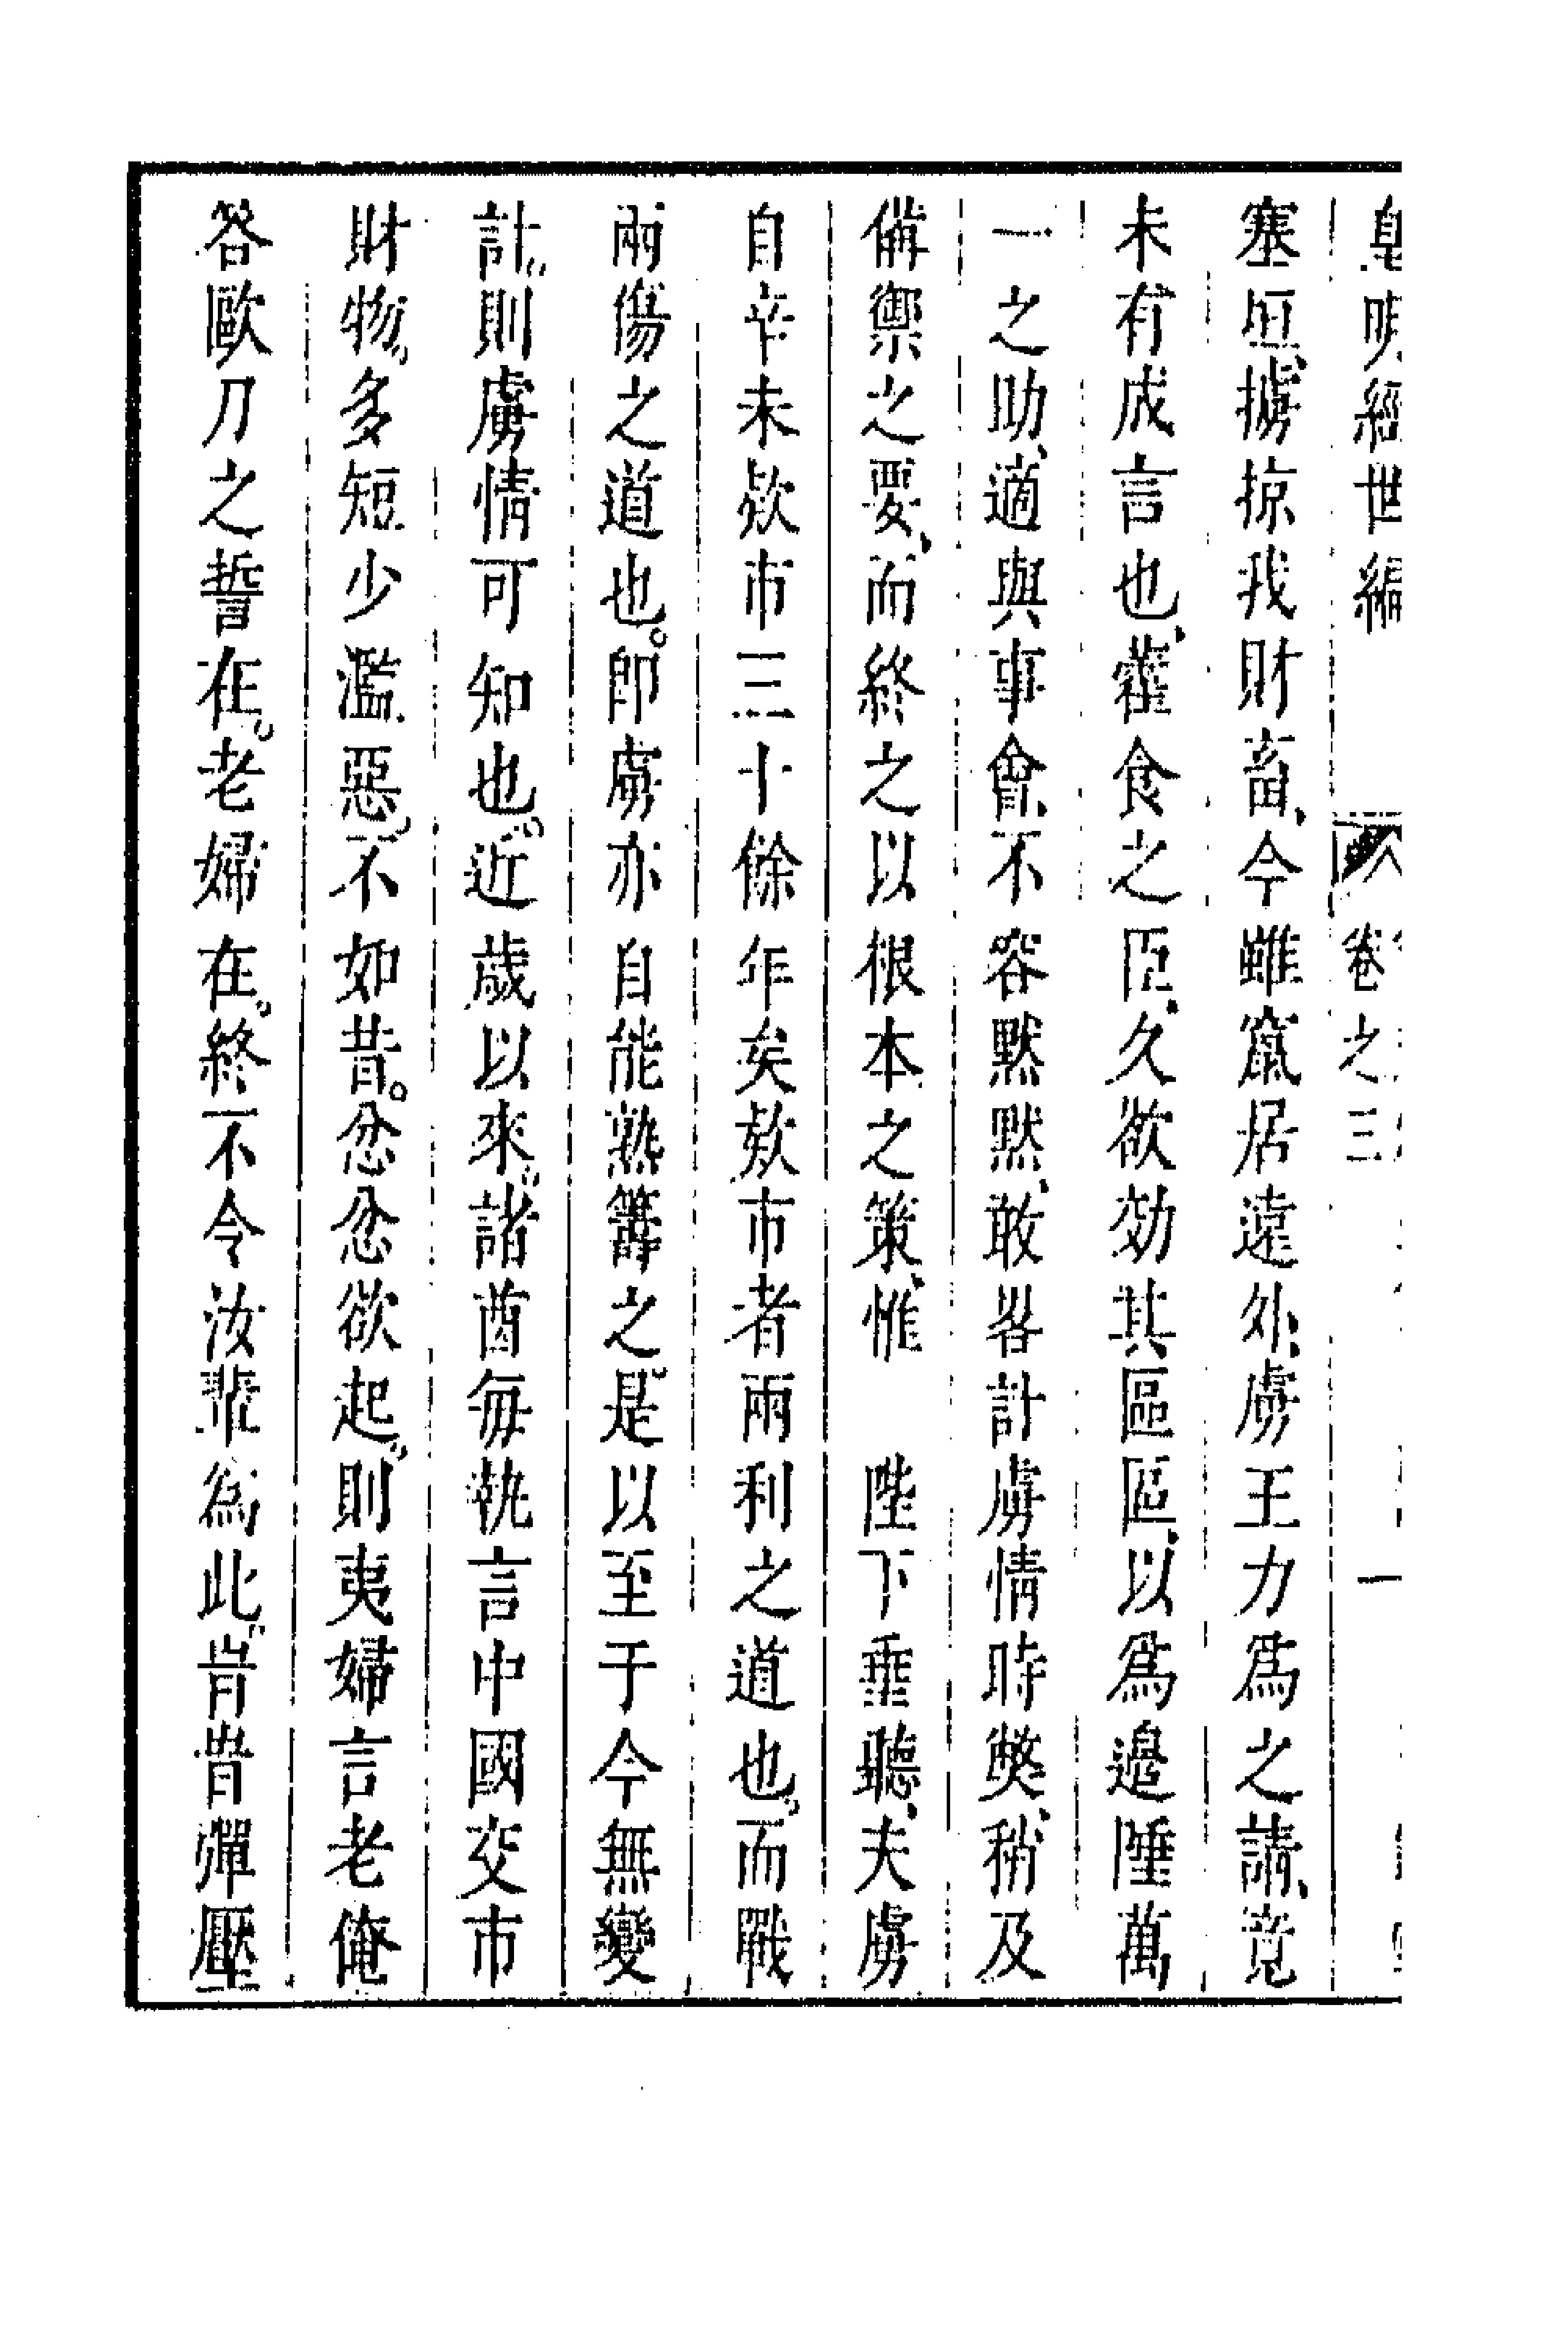 皇明經世編 卷之三 一
塞垣、擄掠我財畜、今雖竄居遠外、虜王力爲之請、竟
未有成言也、藿食之臣、久欲効其區區、以爲邊陲萬
一之助、適與事會、不容默默、敢畧計虜情時獘、稍及
備禦之要、而終之以根本之策、惟 陛下垂聽、夫虜
自辛未欵市三十餘年矣欵市者兩利之道也而戰
兩傷之道也。即虜亦自能熟籌之是以至于今無變
計則虜情可知也近歲以來諸酋每執言中國交市
財物多短少濫惡不如昔。忿忿欲起則夷婦言老俺
答歐刀之誓在。老婦在。終不令汝輩爲此肯昔彈壓